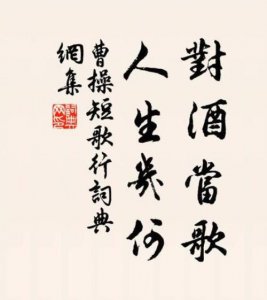 對酒當歌
人生幾何
曹操短歌行詞典
網集